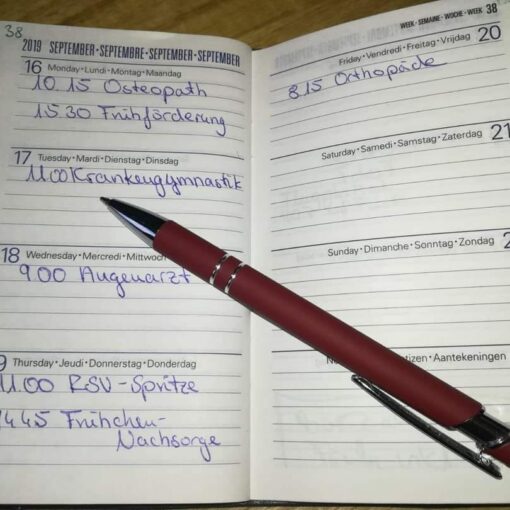 38
2019 SEPTEMBER·SEPTEMBRE·SEPTEMBER·SEPTEMBER
16 Monday·Lundi·Montag·Maandag
10 15 Osteopath
15 30 Frühförderung
17 Tuesday·Mardi·Dienstag·Dinsdag
11 00 Krankengymnastik
18 Wednesday·Mercredi·Mittwoch
9 00 Augenarzt
9 Thursday·Jeudi·Donnerstag·Donderdag
11.00 RSV-Spritze
1445 Frühchen-
Nachsorge
WEEK·SEMAINE·WOCHE·WEEK 38
Friday·Vendredi·Freitag·Vrijdag 20
8 15 Orthopäde
Saturday·Samedi·Samstag·Zaterdag 21
Sunday·Dimanche·Sonntag·Zondag 2
tizen·Aantekeningen